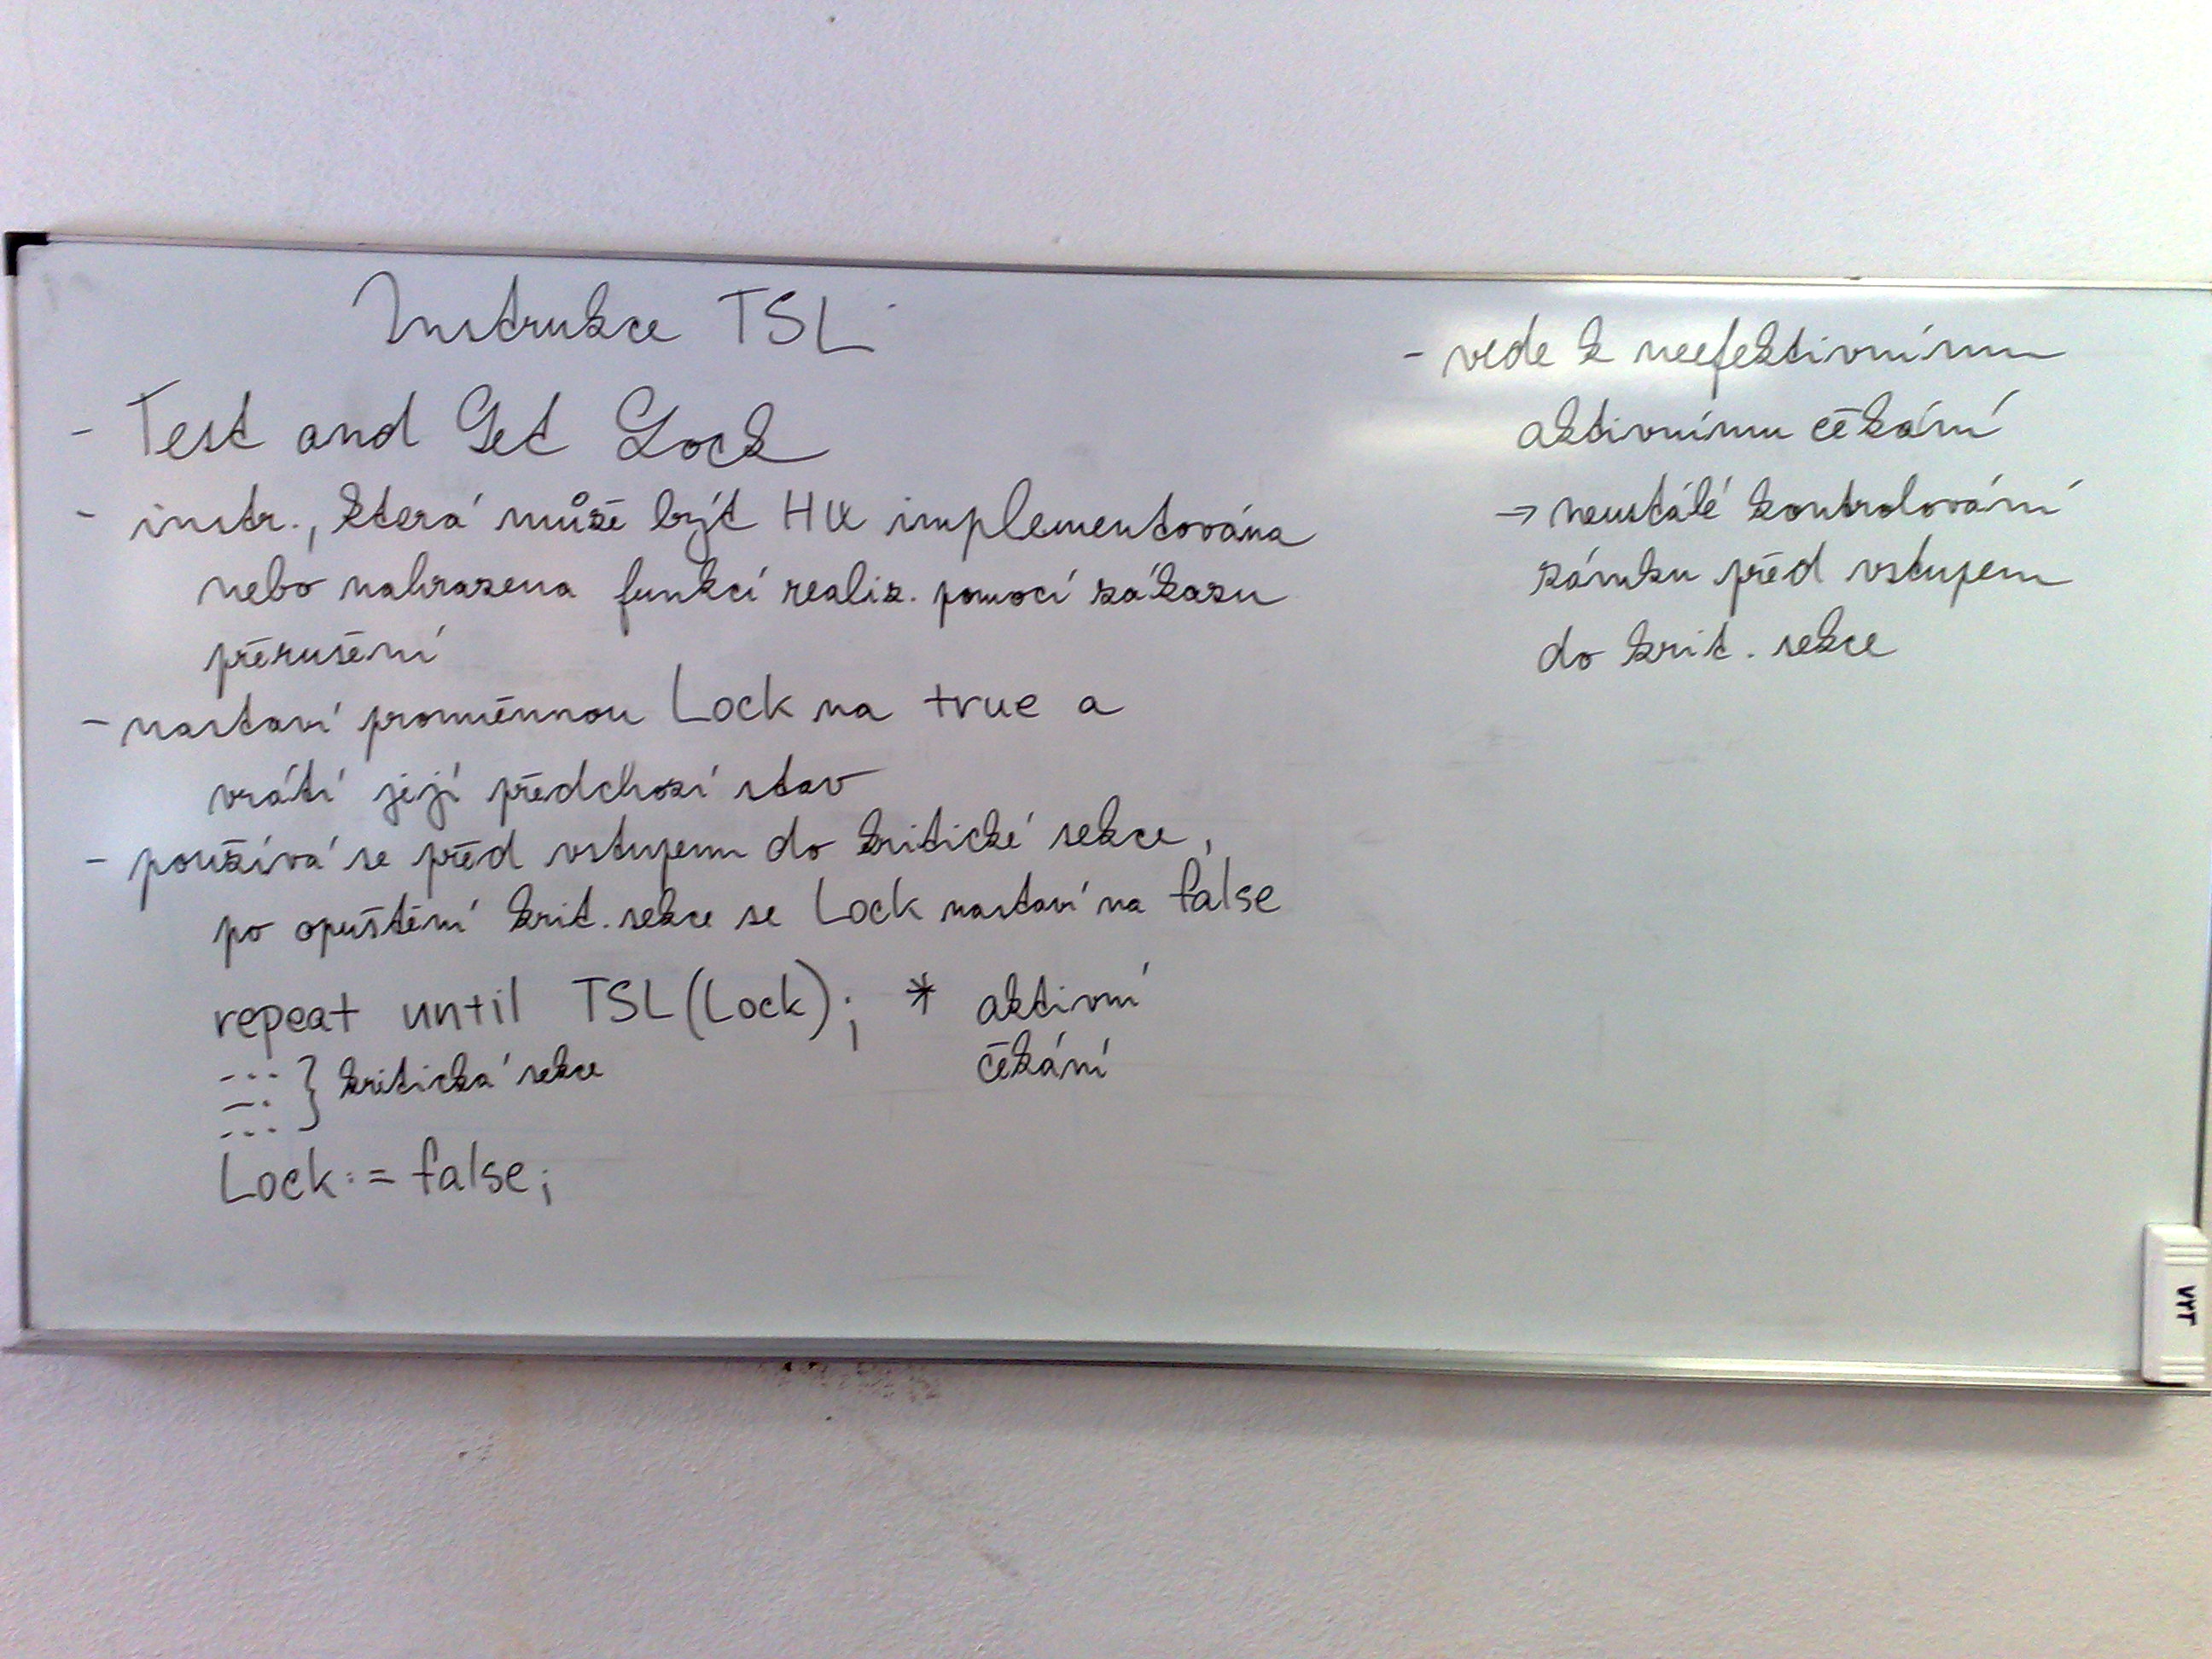 Instrukce TSL
- Test and Set Lock
- instr., která může být HW implementována
nebo nahrazena funkcí realiz. pomocí zákazu
přerušení
- nastaví proměnnou Lock na true a
vrátí její předchozí stav
- používá se před vstupem do kritické sekce,
po opuštění krit. sekce se Lock nastaví na false
repeat until TSL(Lock); * aktivní
čekání
--- } kritická sekce
---
---
Lock := false;
- vede k neefektivnímu
aktivnímu čekání
→ neustálé kontrolování
zámku před vstupem
do krit. sekce
VYT